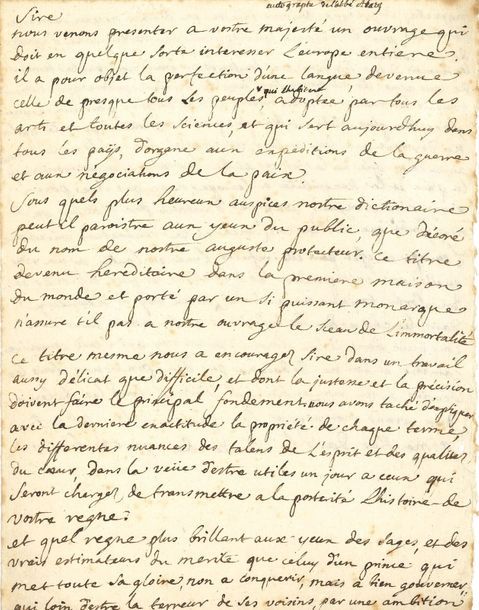 autographe de l'abbé
Sire
nous venons presenter a vostre majesté un ouvrage qui
doit en quelque sorte interesser L'europe entiere.
il a pour objet la perfection d'une langue devenue
celle de presque tous Les peuples, adoptée par tous les
arts et toutes les sciences, et qui sert aujourdhuy dans
tous les païs, d'organe aux expeditions de la guerre
et aux négociations de la paix.
Sous quels plus heureux auspices nostre dictionaire
peut il paroistre aux yeux du public, que décoré
du nom de nostre auguste protecteur. ce titre
devenu hereditaire dans la premiere maison
du monde et porté par un si puissant monarque
n'assure t'il pas a nostre ouvrage le sceau de L'immortalité
ce titre mesme nous a encouragez Sire dans un travail
aussy délicat que difficile, et dont la justesse et la précision
doivent faire le principal fondement. nous avons taché d'expliquer
avec la derniere exactitude la propriété de chaque terme,
les differentes nuances des talens de L'esprit et des qualitez
du cœur, dans la veüe d'estre utiles un jour a ceux qui
seront chargez de transmettre a la posterité L'histoire de
vostre regne.
et quel regne plus brillant aux yeux des sages, et des
vrais estimateurs du merite que celuy d'un prince qui
met toute sa gloire non a conquerir, mais a bien gouverner,
qui loin d'estre la terreur de ses voisins par une ambition